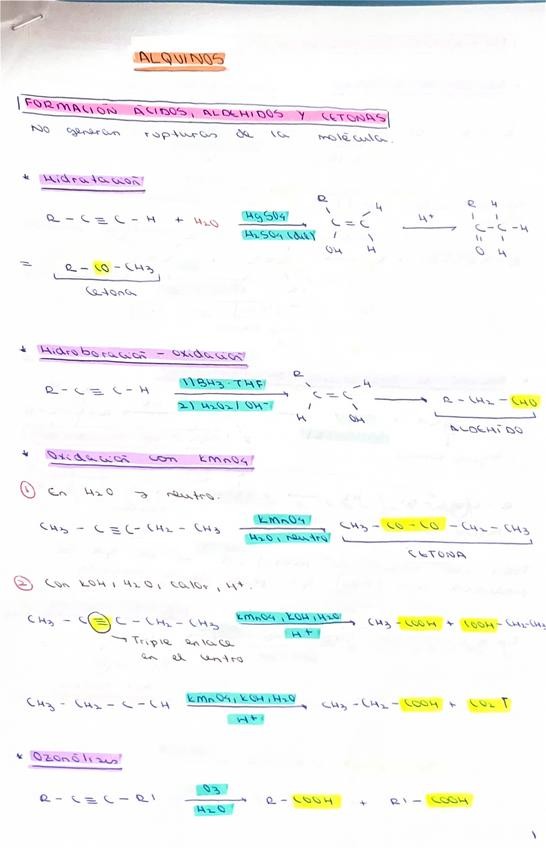 ALQUINOS
FORMACIÓN ÁCIDOS, ALDEHIDOS Y CETONAS
No generan rupturas de la molécula.
* Hidratación
R - C ≡ C - H + H2O HgSO4 H2SO4 (dil) R C = C H OH H H+ R H C - C - H O H
= R - CO - CH3
Cetona
* Hidroboración - oxidación
R - C ≡ C - H 1) BH3 · THF 2) H2O2 / OH- R C = C H H OH R - CH2 - CHO
ALDEHIDO
* Oxidación con KMnO4
1 En H2O → neutro.
CH3 - C ≡ C - CH2 - CH3 KMnO4 H2O, neutro CH3 - CO - CO - CH2 - CH3
CETONA
2 Con KOH, H2O, calor, H+.
CH3 - C ≡ C - CH2 - CH3 KMnO4, KOH, H2O H+ CH3 - COOH + COOH - CH2-CH3
→ Triple enlace
en el centro
CH3 - CH2 - C - CH KMnO4, KOH, H2O H+ CH3 - CH2 - COOH + CO2 ↑
* Ozonólisis
R - C ≡ C - R' O3 H2O R - COOH + R' - COOH
1